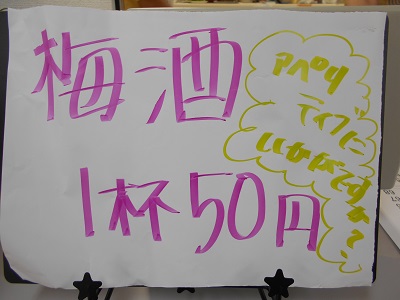 梅酒
1杯50円
アペリ
ティフに
いかがですか?